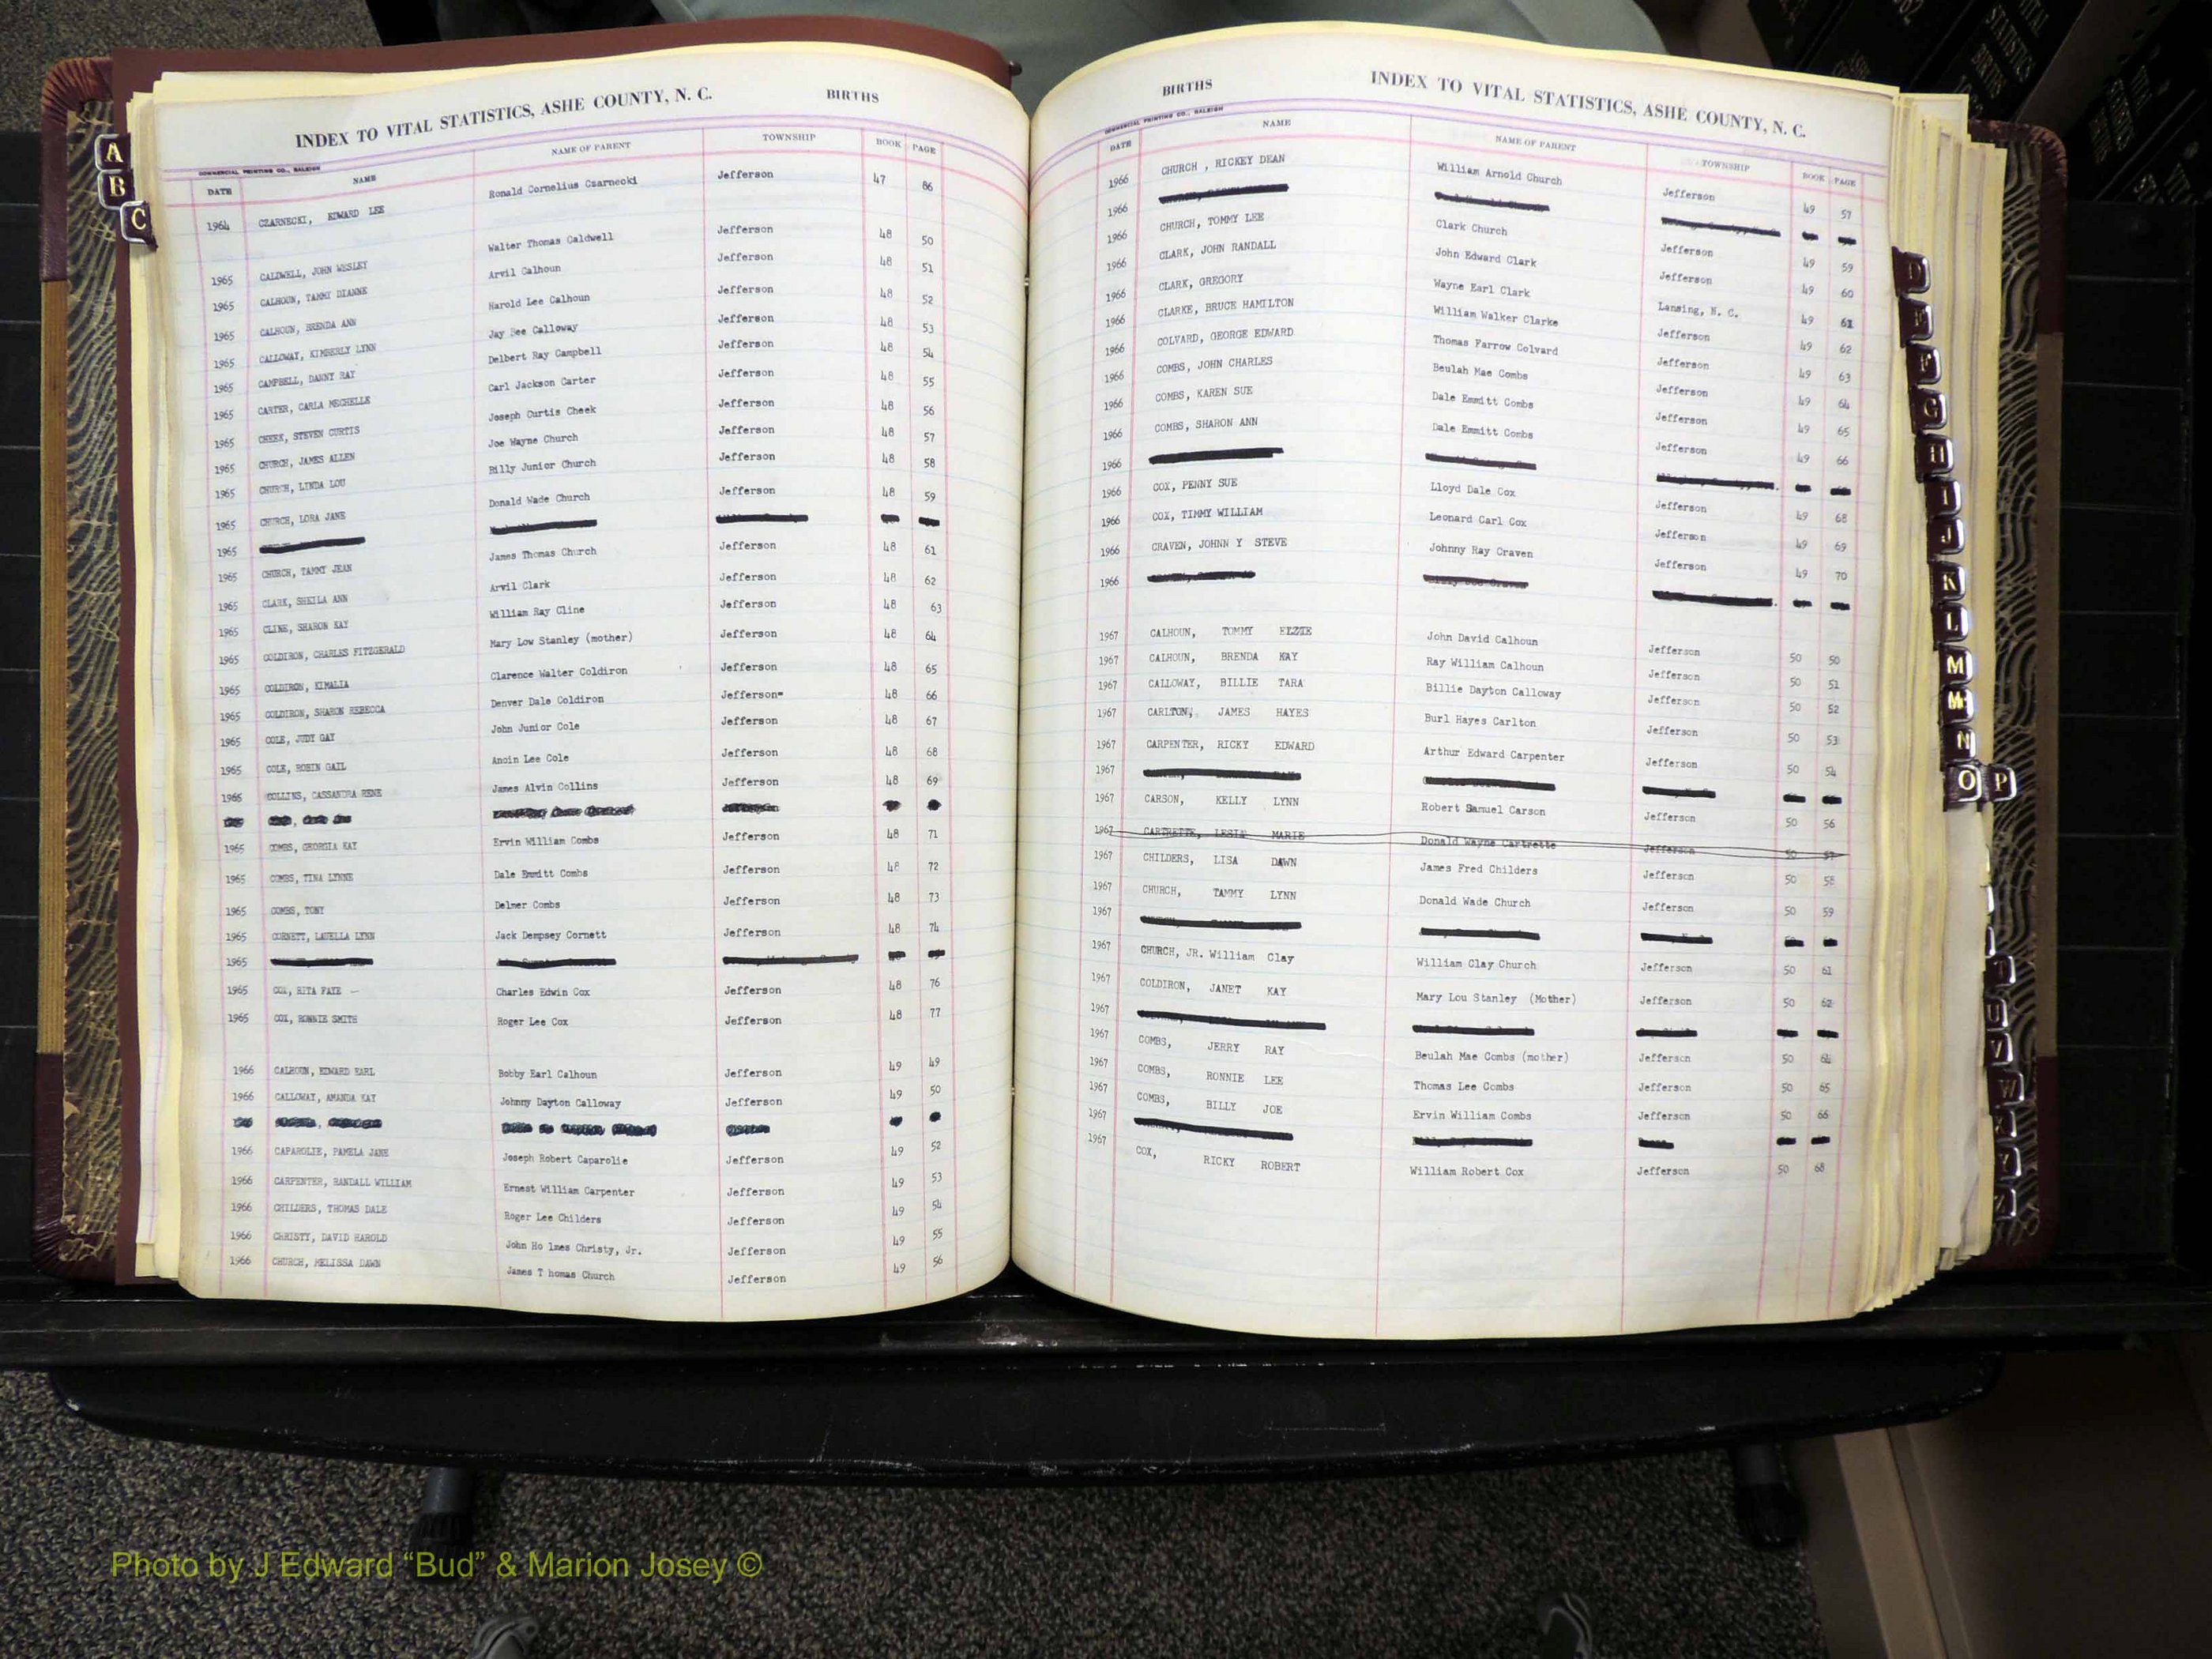 INDEX TO VITAL STATISTICS, ASHE COUNTY, N. C. BIRTHS
COMMERCIAL PRINTING CO., RALEIGH
DATE NAME NAME OF PARENT TOWNSHIP BOOK PAGE
1964 CZARNECKI, EDWARD LEE Ronald Cornelius Czarnecki Jefferson 47 86
1965 CALDWELL, JOHN WESLEY Walter Thomas Caldwell Jefferson 48 50
1965 CALHOUN, TAMMY DIANNE Arvil Calhoun Jefferson 48 51
1965 CALHOUN, BRENDA ANN Harold Lee Calhoun Jefferson 48 52
1965 CALLOWAY, KIMBERLY LYNN Jay Bee Calloway Jefferson 48 53
1965 CAMPBELL, DANNY RAY Delbert Ray Campbell Jefferson 48 54
1965 CARTER, CARLA MECHELLE Carl Jackson Carter Jefferson 48 55
1965 CHEEK, STEVEN CURTIS Joseph Curtis Cheek Jefferson 48 56
1965 CHURCH, JAMES ALLEN Joe Wayne Church Jefferson 48 57
1965 CHURCH, LINDA LOU Billy Junior Church Jefferson 48 58
1965 CHURCH, LORA JANE Donald Wade Church Jefferson 48 59
1965
1965 CHURCH, TAMMY JEAN James Thomas Church Jefferson 48 61
1965 CLARK, SHEILA ANN Arvil Clark Jefferson 48 62
1965 CLINE, SHARON KAY William Ray Cline Jefferson 48 63
1965 COLDIRON, CHARLES FITZGERALD Mary Low Stanley (mother) Jefferson 48 64
1965 COLDIRON, KIMALIA Clarence Walter Coldiron Jefferson 48 65
1965 COLDIRON, SHARON REBECCA Denver Dale Coldiron Jefferson- 48 66
1965 COLE, JUDY GAY John Junior Cole Jefferson 48 67
1965 COLE, ROBIN GAIL Ancin Lee Cole Jefferson 48 68
1965 COLLINS, CASSANDRA RENE James Alvin Collins Jefferson 48 69
1965 COMBS, GEORGIA KAY Ervin William Combs Jefferson 48 71
1965 COMBS, TINA LYNNE Dale Emmitt Combs Jefferson 48 72
1965 COMBS, TONY Delmer Combs Jefferson 48 73
1965 CORNETT, LAUELLA LYNN Jack Dempsey Cornett Jefferson 48 74
1965
1965 COX, RITA FAYE - Charles Edwin Cox Jefferson 48 76
1965 COX, RONNIE SMITH Roger Lee Cox Jefferson 48 77
1966 CALHOUN, EDWARD EARL Bobby Earl Calhoun Jefferson 49 49
1966 CALLOWAY, AMANDA KAY Johnny Dayton Calloway Jefferson 49 50
1966 CAPAROLIE, PAMELA JANE Joseph Robert Caparolie Jefferson 49 52
1966 CARPENTER, RANDALL WILLIAM Ernest William Carpenter Jefferson 49 53
1966 CHILDERS, THOMAS DALE Roger Lee Childers Jefferson 49 54
1966 CHRISTY, DAVID HAROLD John Ho lmes Christy, Jr. Jefferson 49 55
1966 CHURCH, MELISSA DAWN James T homas Church Jefferson 49 56
BIRTHS INDEX TO VITAL STATISTICS, ASHE COUNTY, N. C.
COMMERCIAL PRINTING CO., RALEIGH
DATE NAME NAME OF PARENT TOWNSHIP BOOK PAGE
1966 CHURCH , RICKEY DEAN William Arnold Church Jefferson 49 57
1966
1966 CHURCH, TOMMY LEE Clark Church Jefferson 49 59
1966 CLARK, JOHN RANDALL John Edward Clark Jefferson 49 60
1966 CLARK, GREGORY Wayne Earl Clark Lansing, N. C. 49 61
1966 CLARKE, BRUCE HAMILTON William Walker Clarke Jefferson 49 62
1966 COLVARD, GEORGE EDWARD Thomas Farrow Colvard Jefferson 49 63
1966 COMBS, JOHN CHARLES Beulah Mae Combs Jefferson 49 64
1966 COMBS, KAREN SUE Dale Emmitt Combs Jefferson 49 65
1966 COMBS, SHARON ANN Dale Emmitt Combs Jefferson 49 66
1966
1966 COX, PENNY SUE Lloyd Dale Cox Jefferson 49 68
1966 COX, TIMMY WILLIAM Leonard Carl Cox Jefferson 49 69
1966 CRAVEN, JOHNN Y STEVE Johnny Ray Craven Jefferson 49 70
1966
1967 CALHOUN, TOMMY EZZIE John David Calhoun Jefferson 50 50
1967 CALHOUN, BRENDA KAY Ray William Calhoun Jefferson 50 51
1967 CALLOWAY, BILLIE TARA Billie Dayton Calloway Jefferson 50 52
1967 CARLTON, JAMES HAYES Burl Hayes Carlton Jefferson 50 53
1967 CARPENTER, RICKY EDWARD Arthur Edward Carpenter Jefferson 50 54
1967
1967 CARSON, KELLY LYNN Robert Samuel Carson Jefferson 50 56
1967 CARTRETTE, LESIE MARIE Donald Wayne Cartrette Jefferson 50 57
1967 CHILDERS, LISA DAWN James Fred Childers Jefferson 50 58
1967 CHURCH, TAMMY LYNN Donald Wade Church Jefferson 50 59
1967
1967 CHURCH, JR. William Clay William Clay Church Jefferson 50 61
1967 COLDIRON, JANET KAY Mary Lou Stanley (Mother) Jefferson 50 62
1967
1967 COMBS, JERRY RAY Beulah Mae Combs (mother) Jefferson 50 64
1967 COMBS, RONNIE LEE Thomas Lee Combs Jefferson 50 65
1967 COMBS, BILLY JOE Ervin William Combs Jefferson 50 66
1967
1967 COX, RICKY ROBERT William Robert Cox Jefferson 50 68
A
B
C
D
E
F
G
H
I
J
K
L
M
Mc
N
O P
T
U
V
W
Y
VITAL STATISTICS BIRTHS
Photo by J Edward “Bud” & Marion Josey ©